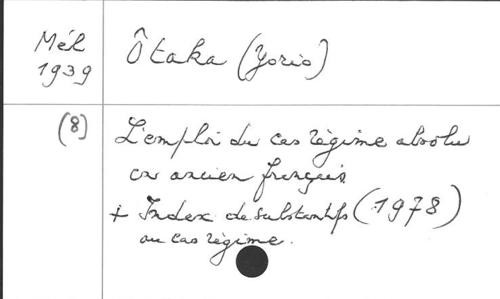 Mél
1939
Ôtaka (Yorio)
(8)
L'emploi du cas régime absolu
en ancien français
+ Index de substantifs (1978)
au cas régime.